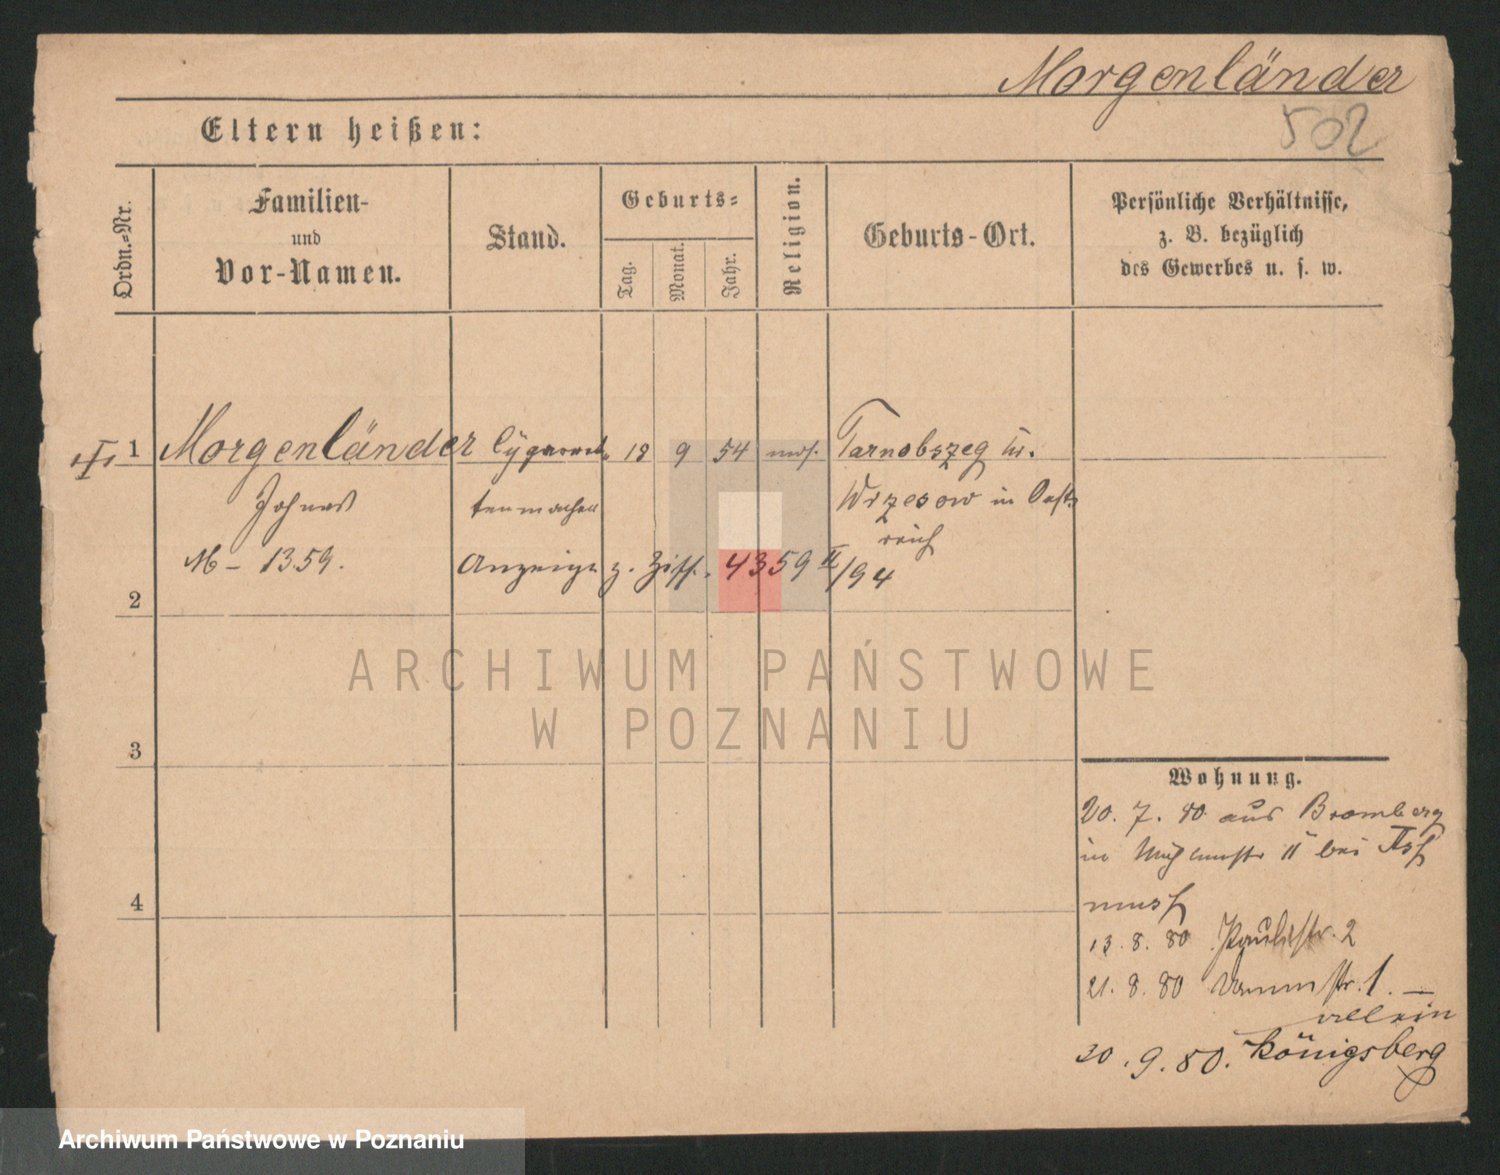 Morgenländer
502
Eltern heißen:
Ordn.=Nr.
Familien-
und
Vor-Namen.
Stand.
Geburts=
Tag.
Monat.
Jahr.
Religion.
Geburts-Ort.
Persönliche Verhältnisse,
z. B. bezüglich
des Gewerbes u. s. w.
1 Morgenländer 18 9 54 mos. Tarnobszeg
Wrzesow in Oest
reich
M- 1359.
Anzeige z. Ziff. 4359 II/94
2
3
4
ARCHIWUM PAŃSTWOWE
W POZNANIU
Wohnung.
20. 7. 80 aus Bromberg
in 11 bei
13. 8. 80 Paulistr. 2
21. 8. 80 1. —
allein
30. 9. 80. Königsberg
Archiwum Państwowe w Poznaniu